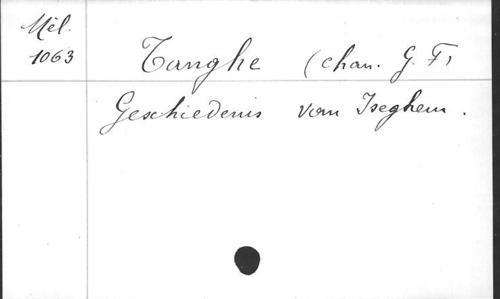 Mél.
1063
Tanghe (chan. G. F)
Geschiedenis van Iseghem.